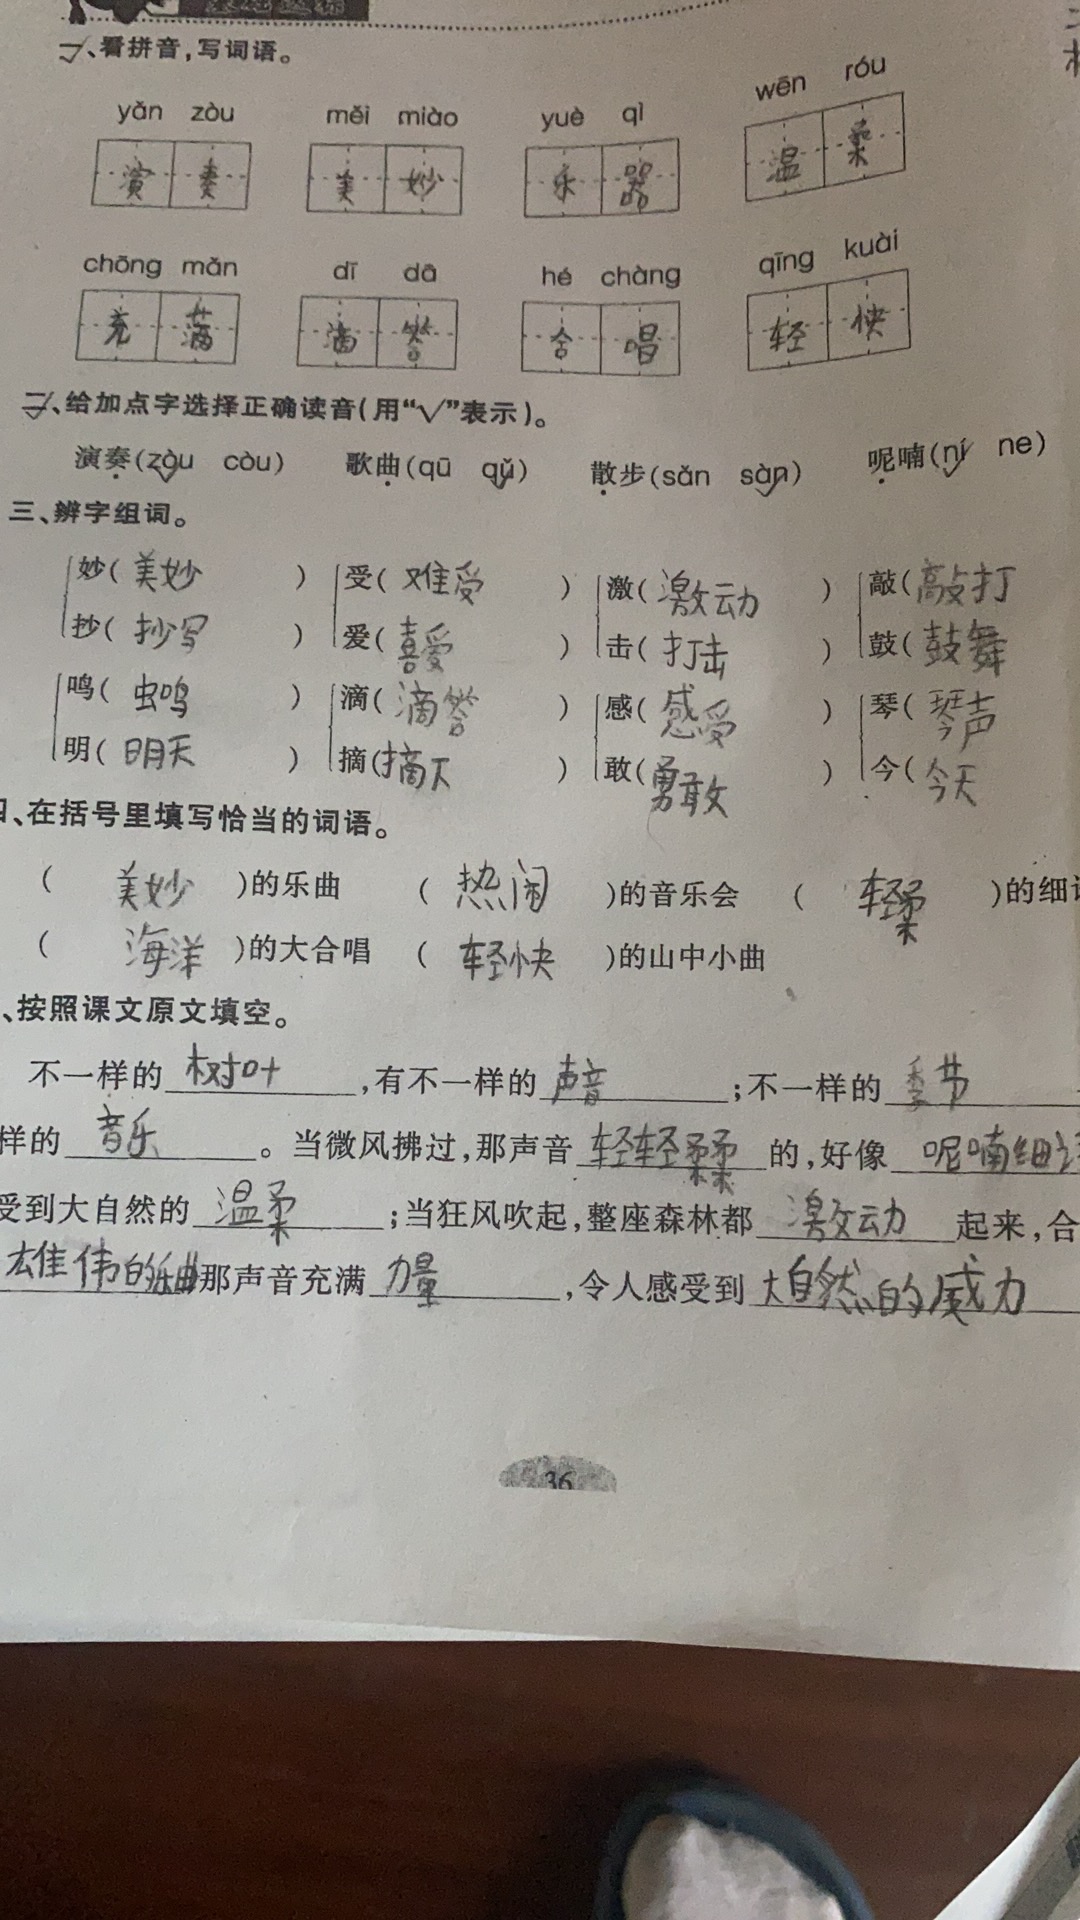 一、看拼音,写词语。
yǎn zòu měi miào yuè qì wēn róu
演奏 美妙 乐器 温柔
chōng mǎn dī dā hé chàng qīng kuài
充满 滴答 合唱 轻快
二、给加点字选择正确读音(用“√”表示)。
演奏(zòu√ còu) 歌曲(qū qǔ√) 散步(sǎn sàn√) 呢喃(ní√ ne)
三、辨字组词。
妙(美妙) 受(难受) 激(激动) 敲(敲打)
抄(抄写) 爱(喜爱) 击(打击) 鼓(鼓舞)
鸣(虫鸣) 滴(滴答) 感(感受) 琴(琴声)
明(明天) 摘(摘下) 敢(勇敢) 今(今天)
、在括号里填写恰当的词语。
(美妙)的乐曲 (热闹)的音乐会 (轻柔)的细
(海洋)的大合唱 (轻快)的山中小曲
、按照课文原文填空。
不一样的树叶,有不一样的声音;不一样的季节
样的音乐。当微风拂过,那声音轻轻柔柔的,好像呢喃细语
受到大自然的温柔;当狂风吹起,整座森林都激动起来,合
雄伟的乐曲那声音充满力量,令人感受到大自然的威力
36